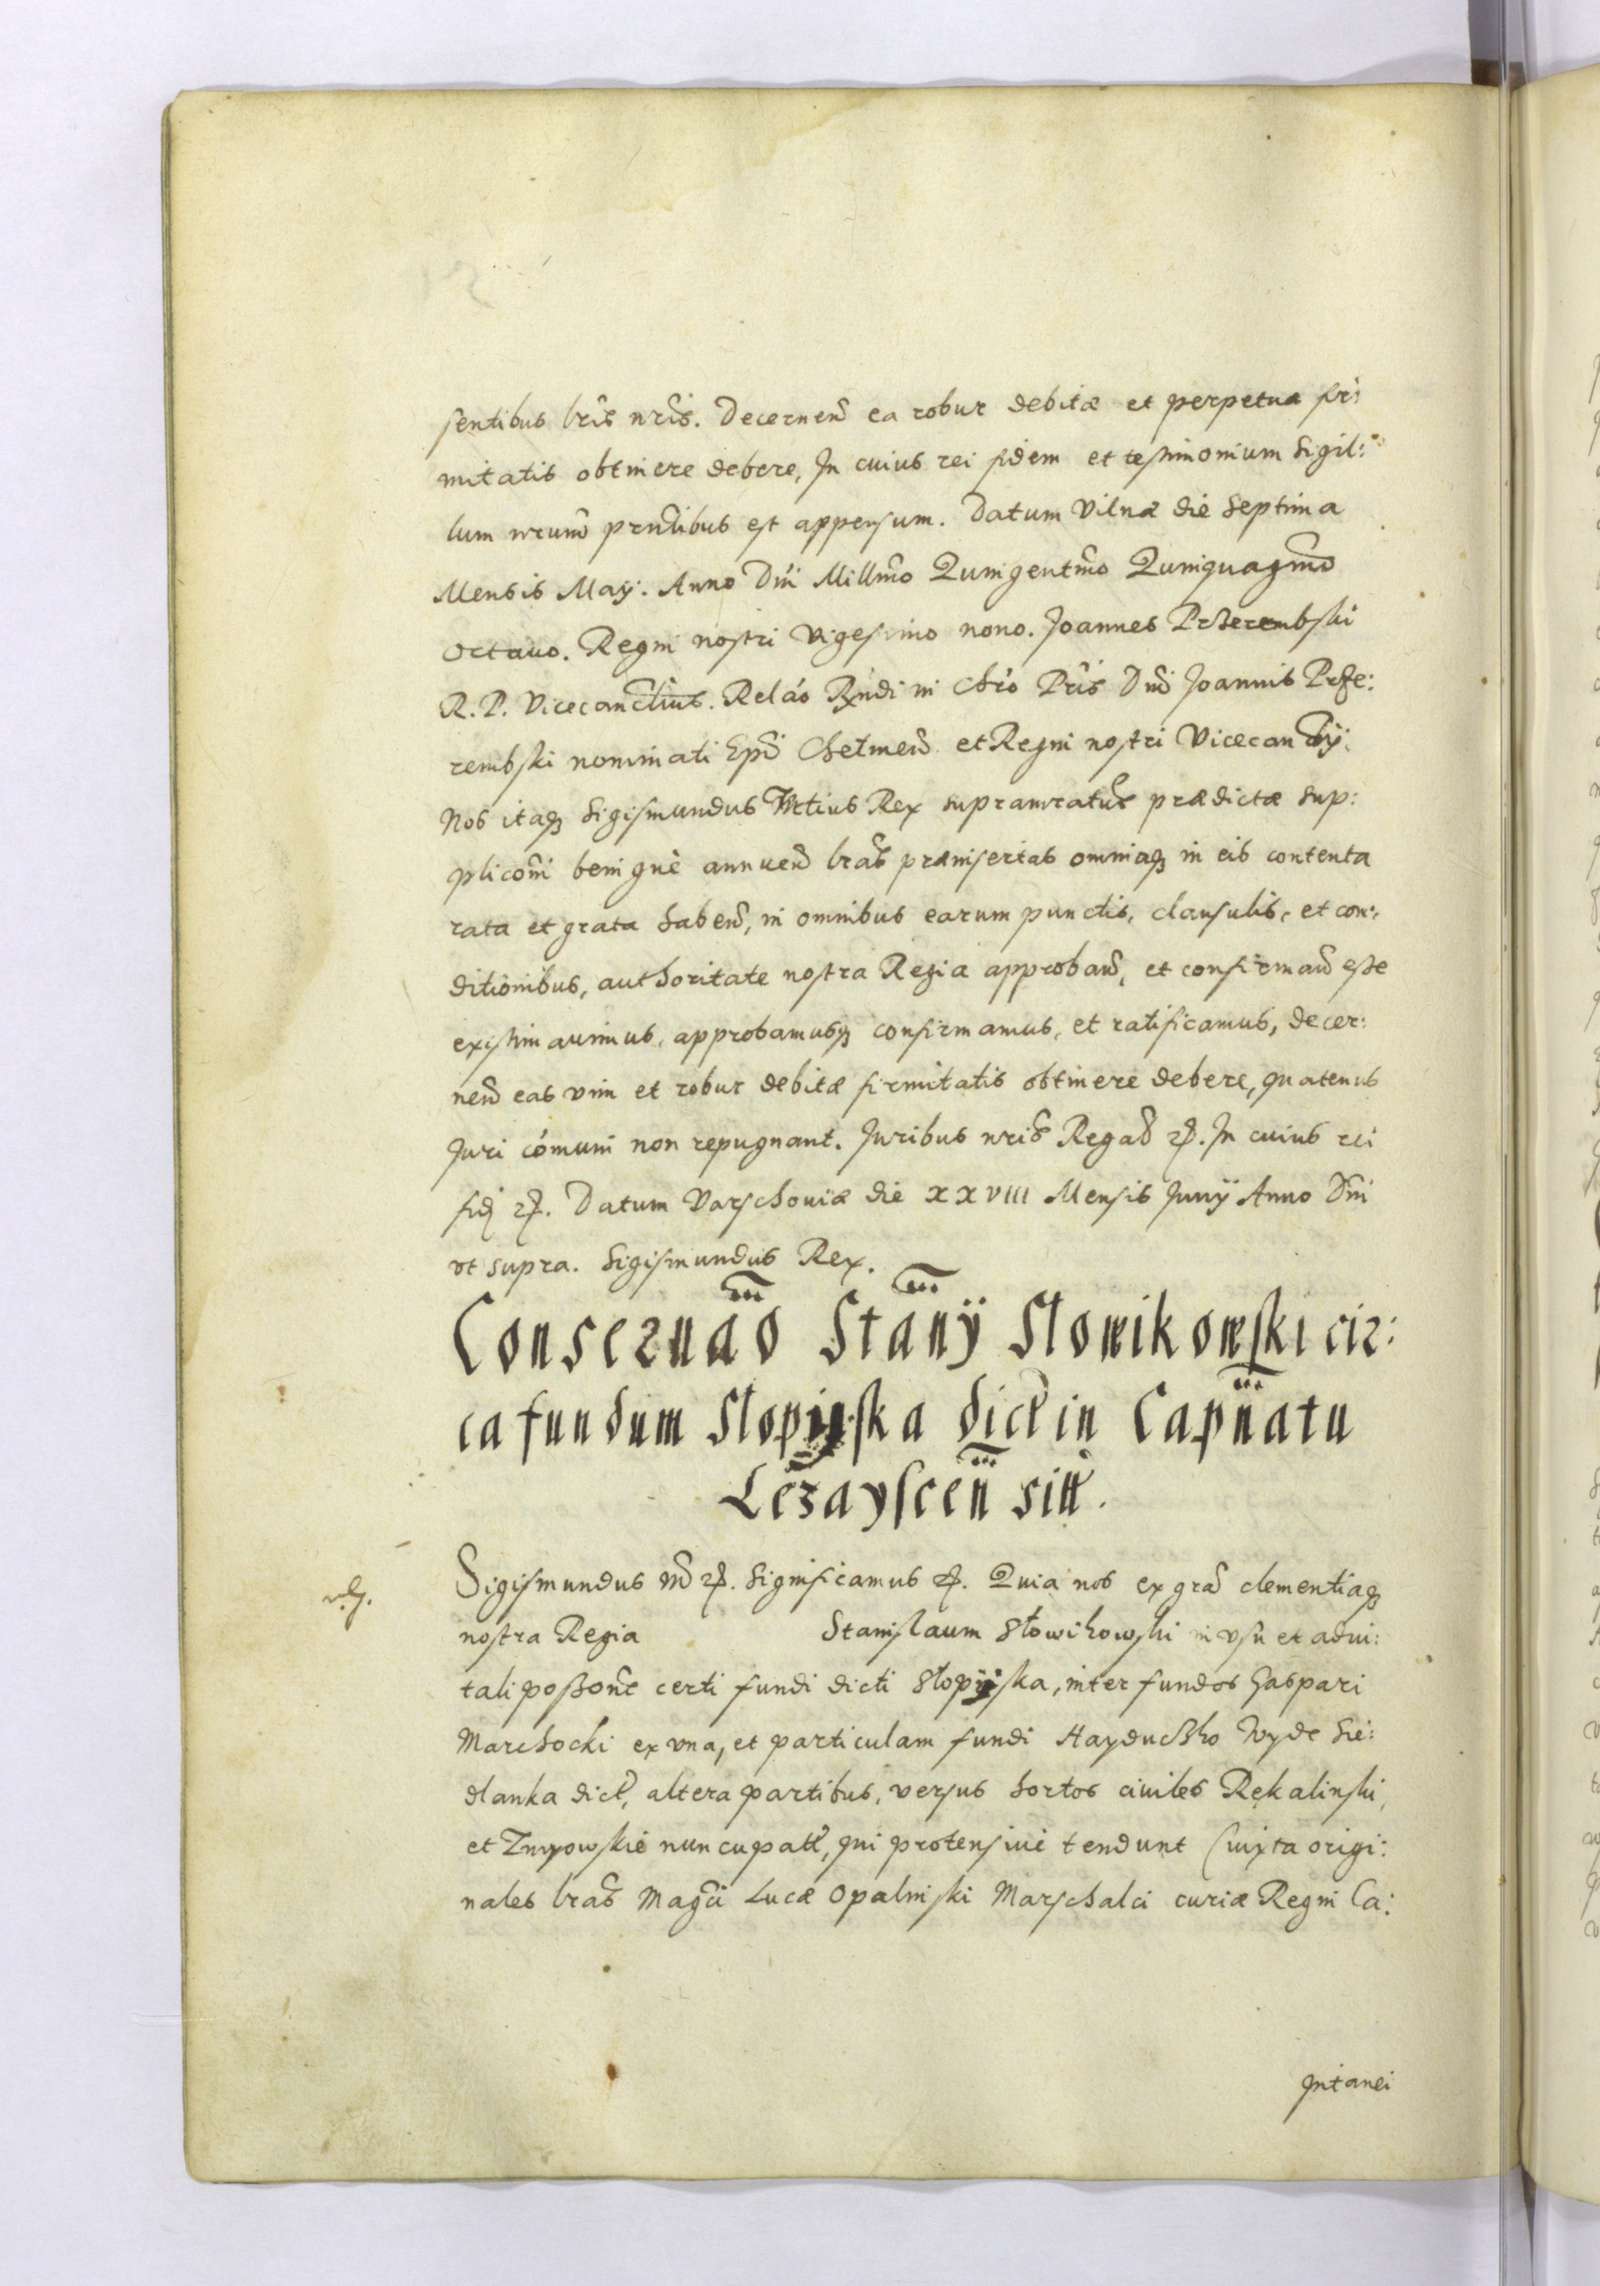 sentibus lris nris. Decernen ea robur debitæ et perpetuæ fir:
mitatis obtinere debere, In cuius rei fidem et testimonium Sigil:
lum nrum prntibus est appensum. Datum Vilnæ die Septima
Mensis Maÿ. Anno Dni Millmo Quingentmo Quinquagmo
Octauo. Regni nostri Vigesimo nono. Joannes Przerembski
R. P. Vicecanclius. Relao Rndi in Chro Pris Dni Joannis Prze:
rembski nominati Epi Chełmen et Regni nostri Vicecanrÿ.
Nos itaq Sigismundus Tertius Rex supranratus prædictæ sup:
pliconi benignè annuen lras præinsertas omniaq in eis contenta
rata et grata haben, in omnibus earum punctis, clausulis, et con:
ditionibus, authoritate nostra Regia approban, et confirman esse
existimauimus, approbamusq confirmamus, et ratificamus, decer:
nen eas vim et robur debitæ firmitatis obtinere debere, quatenus
Juri cómuni non repugnant. Juribus nris Regal etc. In cuius rei
fid etc. Datum Varschouiæ die XXVIII Mensis Junÿ Anno Dni
vt supra. Sigismundus Rex.
Conseruao Stanÿ Slowikowski cir:
ca fundum Slopiska dict in Capnatu
Leżayscen sitt.
Sigismundus etc. Significamus etc. Quia nos ex gra clementiaq
nostra Regia Stanislaum Słowikowski in vsu et adui:
tali possone certi fundi dicti Słopiska, inter fundos Gaspari
Marchocki ex vna, et particulam fundi Hayduczko Wyde Sie:
dlanka dict, altera partibus, versus hortos ciuiles Rękalinski,
et Zmyowskie nuncupatt, qui protensiue tendunt (iuxta origi:
nales lras Magci Lucæ Opalinski Marschalci curiæ Regni Ca:
pitanei